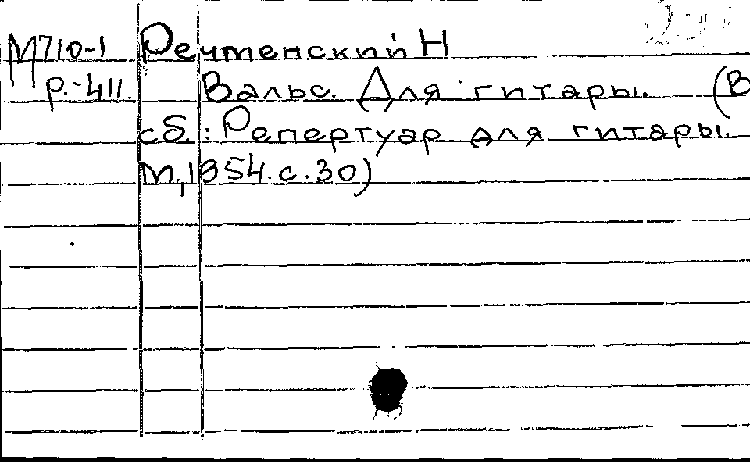 М710-1 Речменский Н
р.-411. Вальс. Для гитары. (В
сб.: Репертуар для гитары.
М, 1954. с. 30)